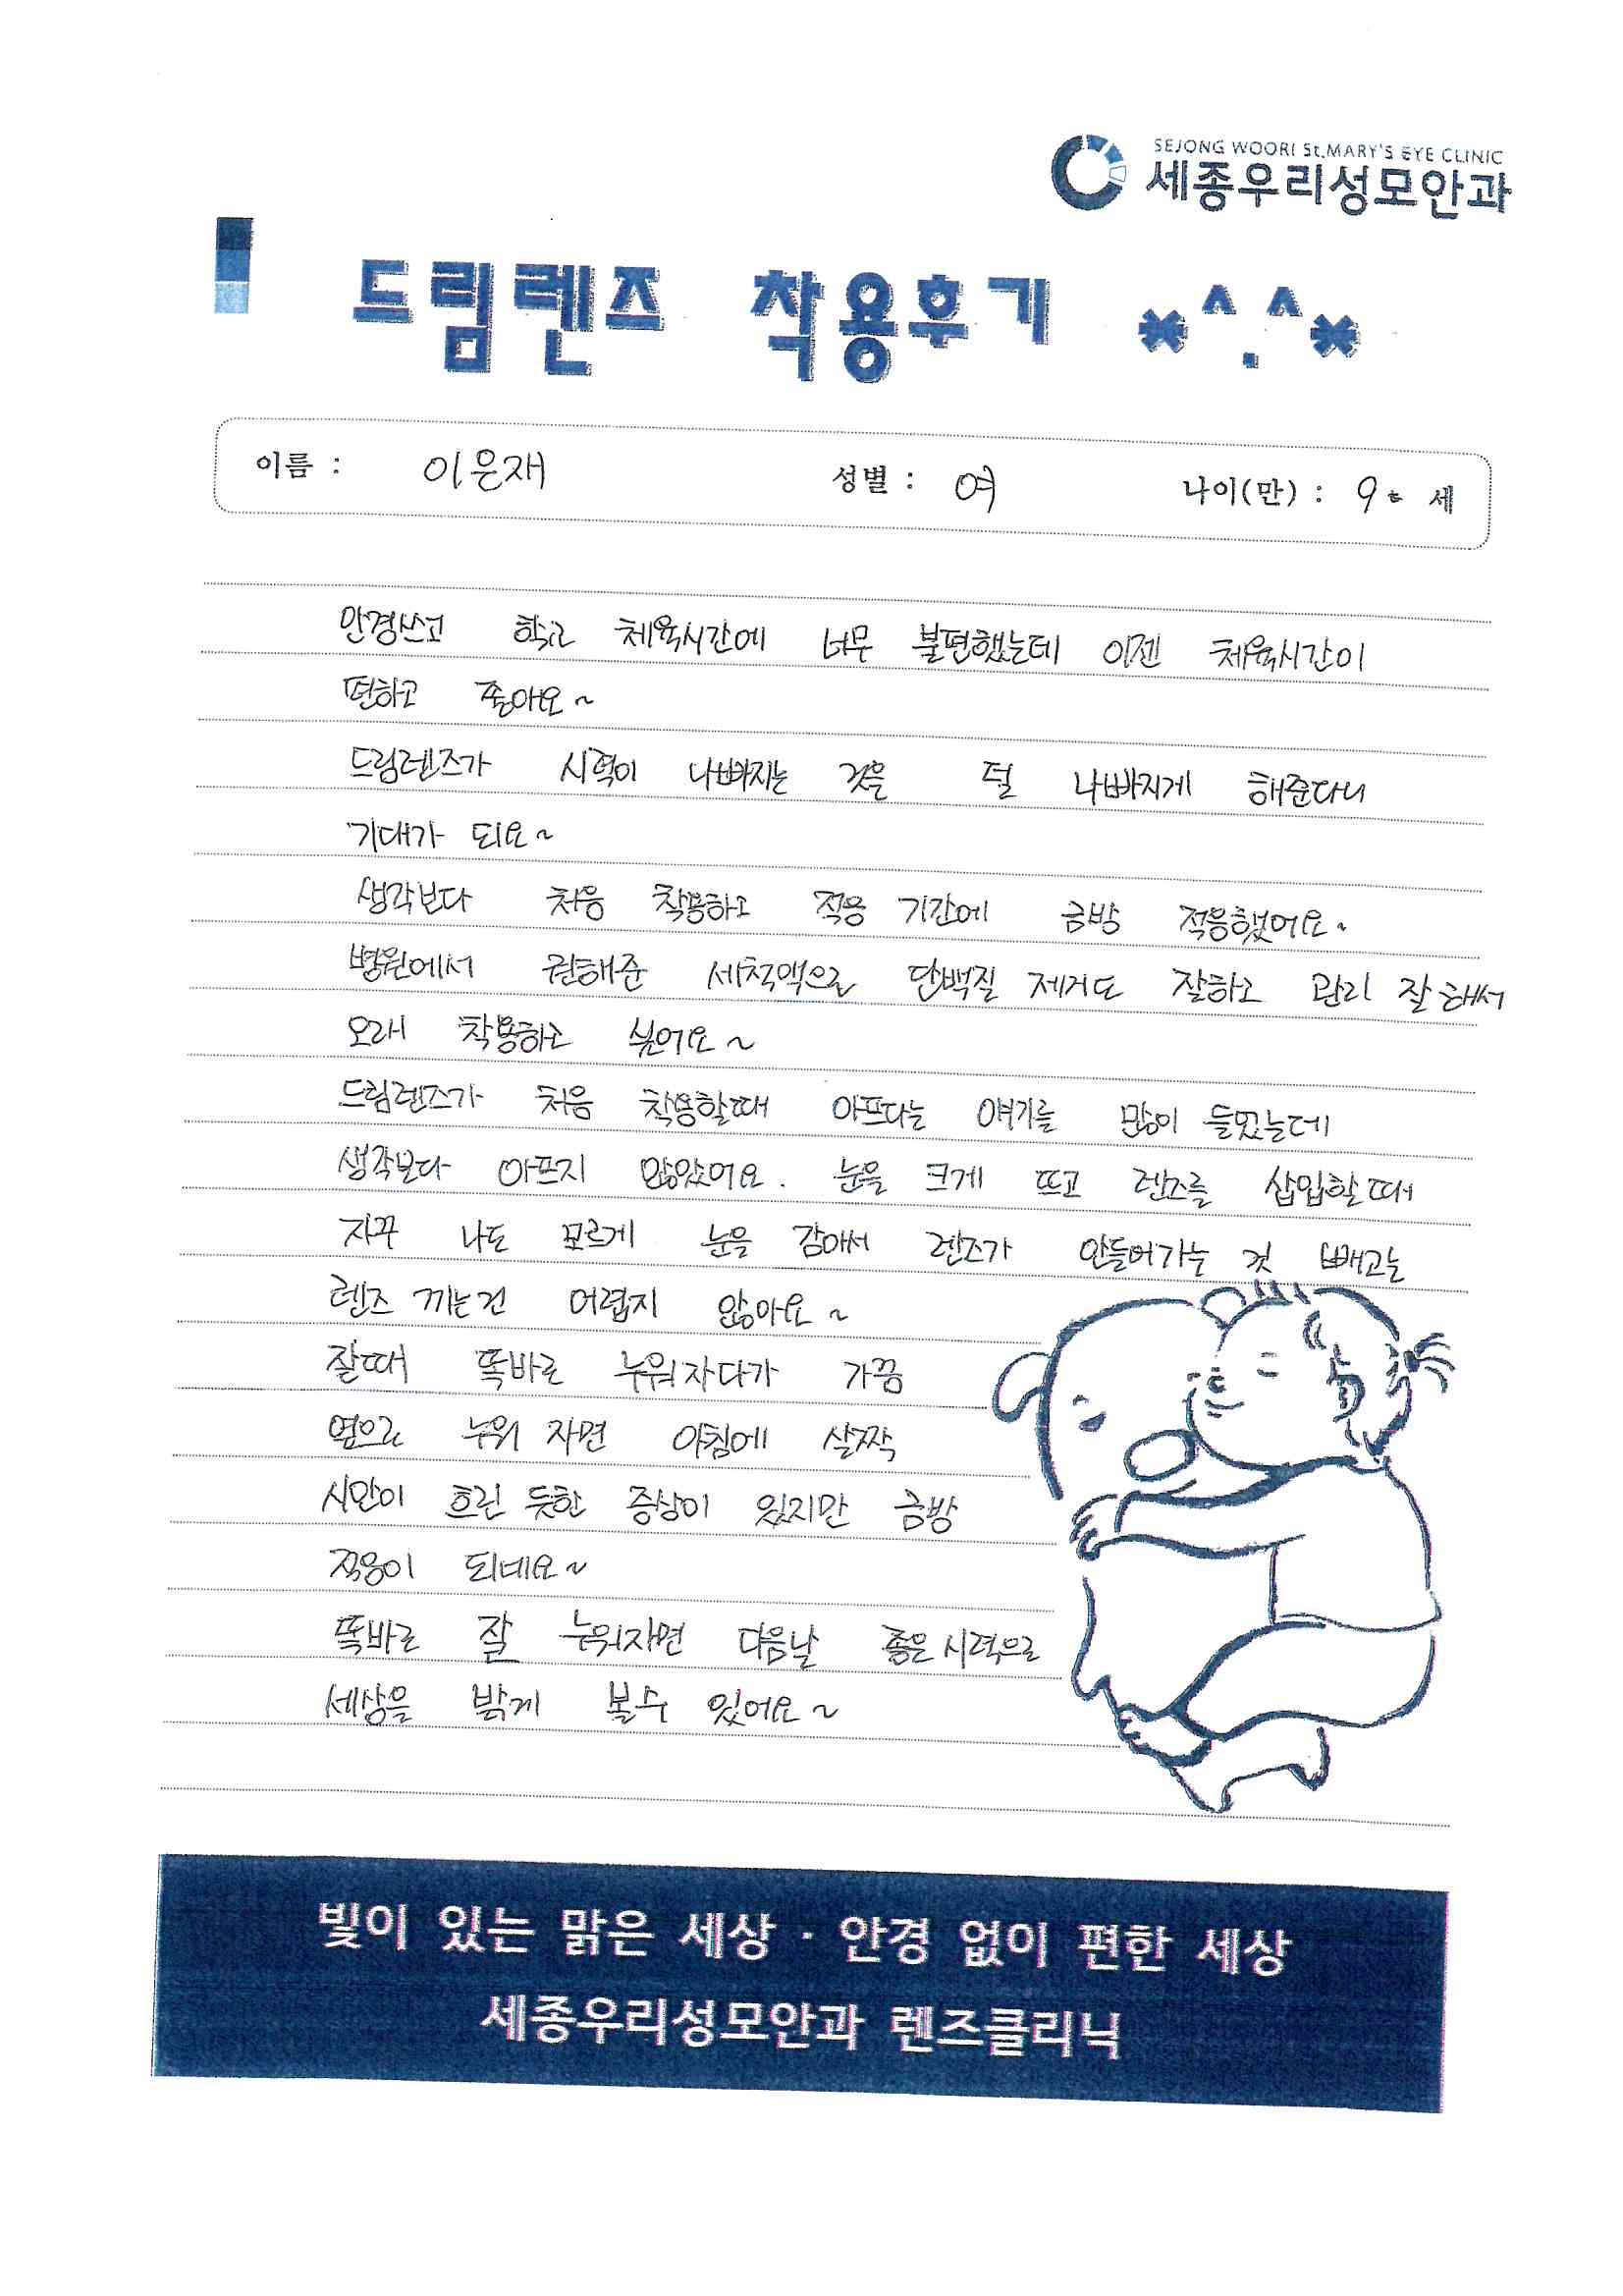 SEJONG WOORI St.MARY'S EYE CLINIC
세종우리성모안과
드림렌즈 착용후기 *^.^*
이름 : 이은재 성별 : 여 나이(만) : 9 세
안경쓰고 학교 체육시간에 너무 불편했는데 이젠 체육시간이
편하고 좋아요~
드림렌즈가 시력이 나빠지는 것을 덜 나빠지게 해준다니
기대가 되요~
생각보다 처음 착용하고 적응 기간에 금방 적응했어요~
병원에서 권해준 세척액으로 단백질 제거도 잘하고 관리 잘해서
오래 착용하고 싶어요~
드림렌즈가 처음 착용할때 아프다는 얘기를 많이 들었는데
생각보다 아프지 않았어요. 눈을 크게 뜨고 렌즈를 삽입할때
자꾸 나도 모르게 눈을 감아서 렌즈가 안들어가는 것 빼고는
렌즈 끼는건 어렵지 않아요~
잘때 똑바로 누워자다가 가끔
옆으로 누워 자면 아침에 살짝
시안이 흐린 듯한 증상이 있지만 금방
적응이 되네요~
똑바로 잘 누워자면 다음날 좋은시력으로
세상을 밝게 볼수 있어요~
빛이 있는 맑은 세상 · 안경 없이 편한 세상
세종우리성모안과 렌즈클리닉